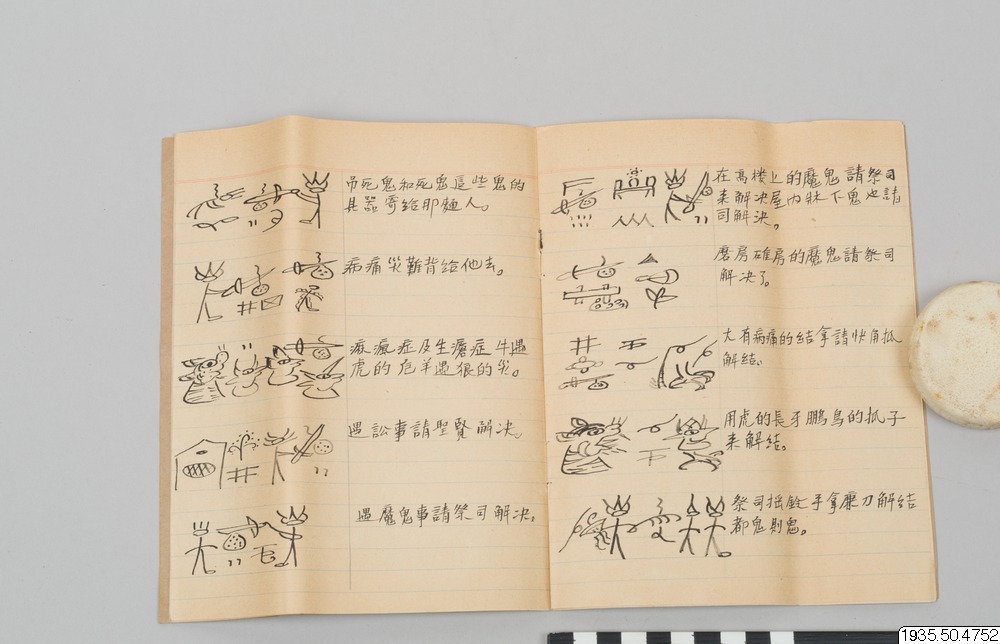 吊死鬼和死鬼這些鬼的
具器寄給那麵人。
病痛災難背给他去。
瘋症及生瘡症牛遇
虎的危羊遇狼的災。
遇訟事請聖賢解決。
遇魔鬼事請祭司解決。
在高楼上的魔鬼請祭司
来解决屋内牀下鬼也請
司解决。
磨房碓房的魔鬼請祭司
解决了。
大有病痛的結拿請快角抵
解結
用虎的長牙鵬鳥的抓子
来解結。
祭司摇鈴手拿鐮刀解结
都鬼則鬼。
1935.50.4752